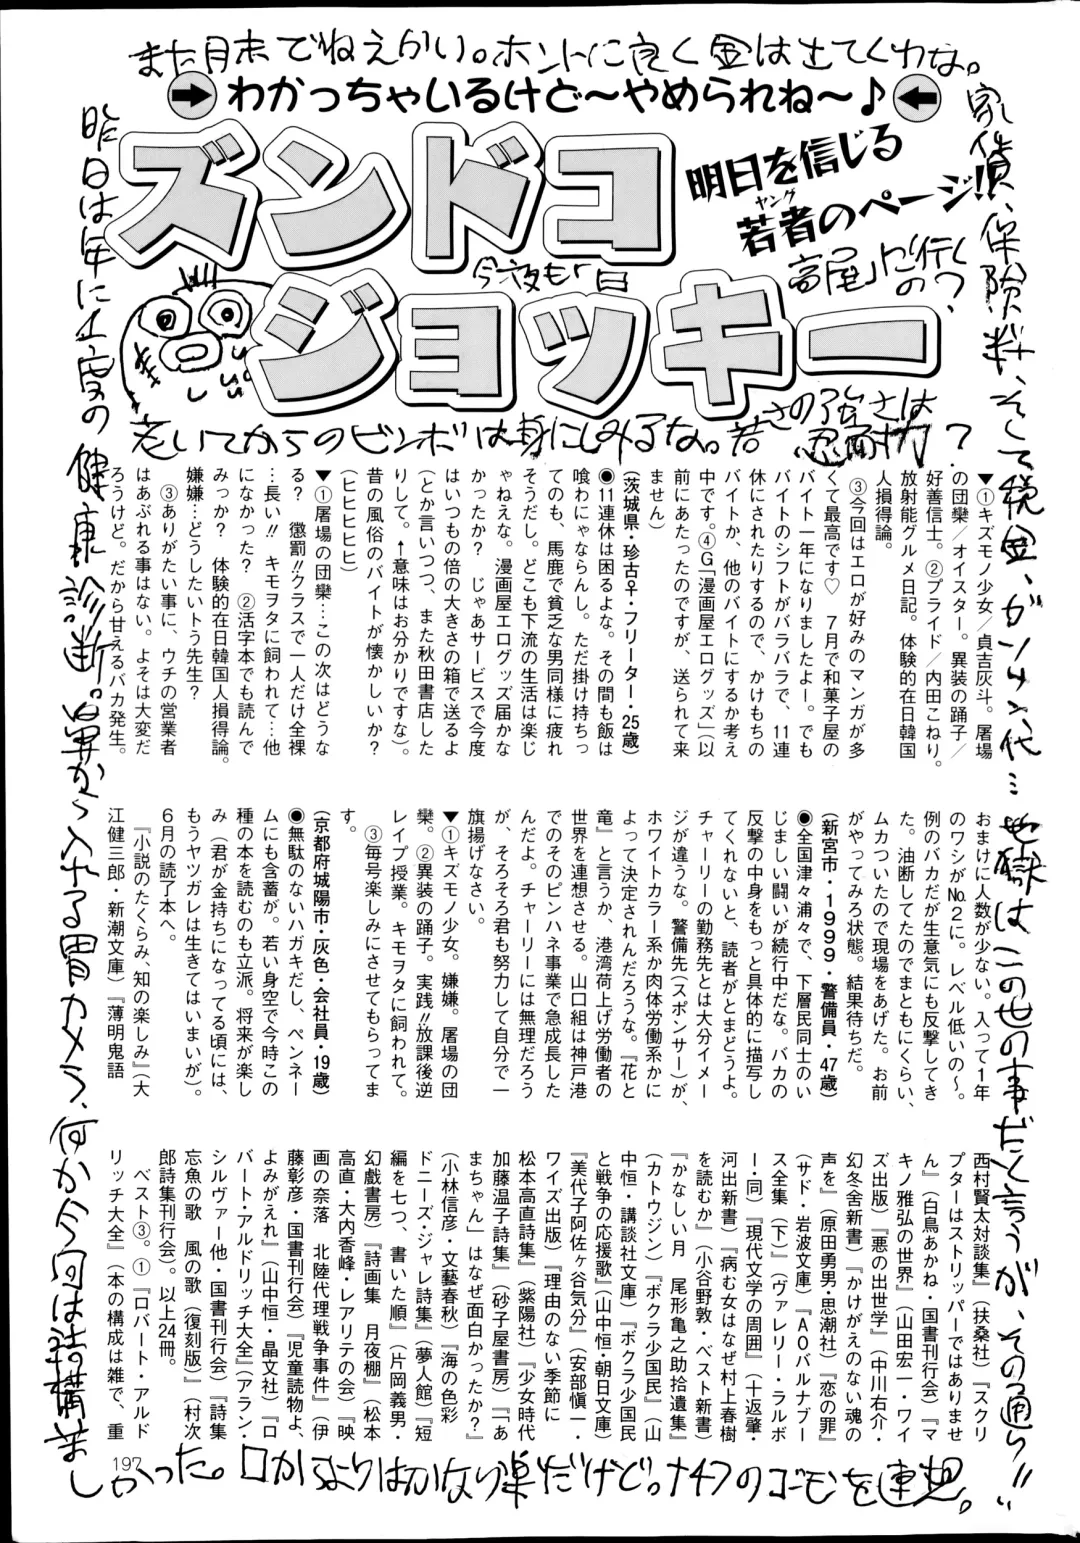 また月末でねえかい。ホントに良く金は出てくわな。
わかっちゃいるけど〜やめられね〜♪
ズンドコ
ジョッキー
明日を信じる
若者のページ!!
ヤング
今夜も一日
高尾山に行くの?
老いてからのビンボは身にしみるな。若さの強さは忍耐力?
家賃、保険料、そして税金、ガソリン代…地獄はこの世の事だと言うが、その通り!!
昨日は年に1度の健康診断。鼻から入れる胃カメラ、何か今回は結構苦
しかった。口からよりはかなり楽だけど。ナチのゴーモンを連想。
▼①キズモノ少女/貞吉灰斗。屠場
の団欒/オイスター。異装の踊子/
好善信士。②プライド/内田こねり。
放射能グルメ日記。体験的在日韓国
人損得論。
③今回はエロが好みのマンガが多
くて最高です♡ 7月で和菓子屋の
バイト一年になりましたよー。でも
バイトのシフトがバラバラで、11連
休にされたりするので、かけもちの
バイトか、他のバイトにするか考え
中です。④G「漫画屋エログッズ」(以
前にあたったのですが、送られて来
ません)
(茨城県・珍古♀・フリーター・25歳)
●11連休は困るよな。その間も飯は
喰わにゃならんし。ただ掛け持ちっ
てのも、馬鹿で貧乏な男同様に疲れ
そうだし。どこも下流の生活は楽じ
ゃねえな。漫画屋エログッズ届かな
かったか? じゃあサービスで今度
はいつもの倍の大きさの箱で送るよ
(とか言いつつ、また秋田書店した
りして。↑意味はお分かりですな)。
昔の風俗のバイトが懐かしいか?
(ヒヒヒヒヒ)
▼①屠場の団欒…この次はどうな
る? 懲罰!!クラスで一人だけ全裸
…長い!! キモヲタに飼われて…他
になかった? ②活字本でも読んで
みっか? 体験的在日韓国人損得論。
嫌嫌…どうしたいトう先生?
③ありがたい事に、ウチの営業者
はあぶれる事はない。よそは大変だ
ろうけど。だから甘えるバカ発生。
おまけに人数が少ない。入って1年
のワシがNo.2に。レベル低いの〜。
例のバカだが生意気にも反撃してき
た。油断してたのでまともにくらい、
ムカついたので現場をあげた。お前
がやってみろ状態。結果待ちだ。
(新宮市・1999・警備員・47歳)
●全国津々浦々で、下層民同士のい
じましい闘いが続行中だな。バカの
反撃の中身をもっと具体的に描写し
てくれないと、読者がとまどうよ。
チャーリーの勤務先とは大分イメー
ジが違うな。警備先(スポンサー)が、
ホワイトカラー系か肉体労働系かに
よって決定されんだろうな。『花と
竜』と言うか、港湾荷上げ労働者の
世界を連想させる。山口組は神戸港
でのそのピンハネ事業で急成長した
んだよ。チャーリーには無理だろう
が、そろそろ君も努力して自分で一
旗揚げなさい。
▼①キズモノ少女。嫌嫌。屠場の団
欒。②異装の踊子。実践!!放課後逆
レイプ授業。キモヲタに飼われて。
③毎号楽しみにさせてもらってま
す。
(京都府城陽市・灰色・会社員・19歳)
●無駄のないハガキだし、ペンネー
ムにも含蓄が。若い身空で今時この
種の本を読むのも立派。将来が楽し
み(君が金持ちになってる頃には、
もうヤツガレは生きてはいまいが)。
6月の読了本へ。
『小説のたくらみ、知の楽しみ』(大
江健三郎・新潮文庫)『薄明鬼語
西村賢太対談集』(扶桑社)『スクリ
プターはストリッパーではありませ
ん』(白鳥あかね・国書刊行会)『マ
キノ雅弘の世界』(山田宏一・ワイ
ズ出版)『悪の出世学』(中川右介・
幻冬舎新書)『かけがえのない魂の
声を』(原田勇男・思潮社)『恋の罪』
(サド・岩波文庫)『AOバルナブー
ス全集(下)』(ヴァレリー・ラルボ
ー・同)『現代文学の周囲』(十返肇・
河出新書)『病む女はなぜ村上春樹
を読むか』(小谷野敦・ベスト新書)
『かなしい月 尾形亀之助拾遺集』
(カトウジン)『ボクラ少国民』(山
中恒・講談社文庫)『ボクラ少国民
と戦争の応援歌』(山中恒・朝日文庫)
『美代子阿佐ヶ谷気分』(安部愼一・
ワイズ出版)『理由のない季節に
松本高直詩集』(紫陽社)『少女時代
加藤温子詩集』(砂子屋書房)『「あ
まちゃん」はなぜ面白かったか?』
(小林信彦・文藝春秋)『海の色彩
ドニーズ・ジャレ詩集』(夢人館)『短
編を七つ、書いた順』(片岡義男・
幻戯書房)『詩画集 月夜棚』(松本
高直・大内香峰・レアリテの会)『映
画の奈落 北陸代理戦争事件』(伊
藤彰彦・国書刊行会)『児童読物よ、
よみがえれ』(山中恒・晶文社)『ロ
バート・アルドリッチ大全』(アラン・
シルヴァー他・国書刊行会)『詩集
忘魚の歌 風の歌(復刻版)』(村次
郎詩集刊行会)。以上24冊。
ベスト③。①『ロバート・アルド
リッチ大全』(本の構成は雑で、重
197